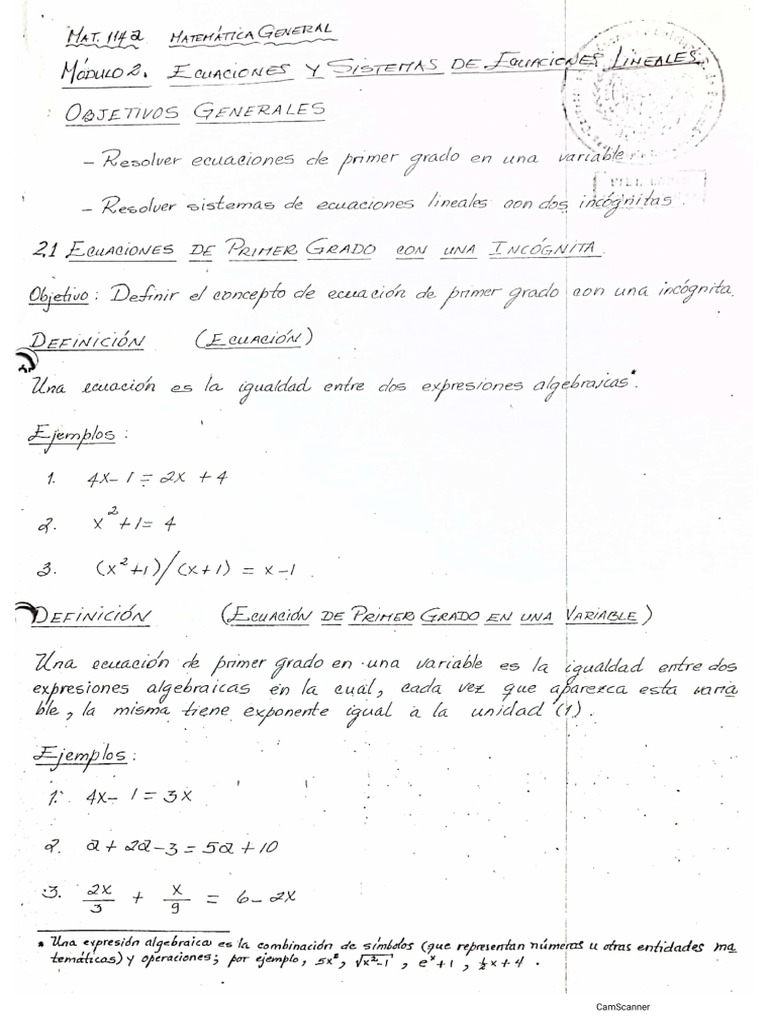 MAT. 1142 MATEMÁTICA GENERAL
MÓDULO 2. ECUACIONES Y SISTEMAS DE ECUACIONES LINEALES.
OBJETIVOS GENERALES
- Resolver ecuaciones de primer grado en una variable.
- Resolver sistemas de ecuaciones lineales con dos incógnitas.
2.1 ECUACIONES DE PRIMER GRADO CON UNA INCÓGNITA.
Objetivo: Definir el concepto de ecuación de primer grado con una incógnita.
DEFINICIÓN (ECUACIÓN)
Una ecuación es la igualdad entre dos expresiones algebraicas*.
Ejemplos:
1. 4x-1 = 2x + 4
2. x²+1= 4
3. (x²+1)/(x+1) = x-1
DEFINICIÓN (ECUACIÓN DE PRIMER GRADO EN UNA VARIABLE)
Una ecuación de primer grado en una variable es la igualdad entre dos
expresiones algebraicas en la cual, cada vez que aparezca esta varia
ble, la misma tiene exponente igual a la unidad (1).
Ejemplos:
1. 4x-1 = 3x
2. a + 2a-3 = 5a + 10
3. 2x/3 + x/9 = 6-2x
* Una expresión algebraica es la combinación de símbolos (que representan números u otras entidades ma
temáticas) y operaciones; por ejemplo, 5x², √x²-1, eˣ+1, ½x+4.
CamScanner